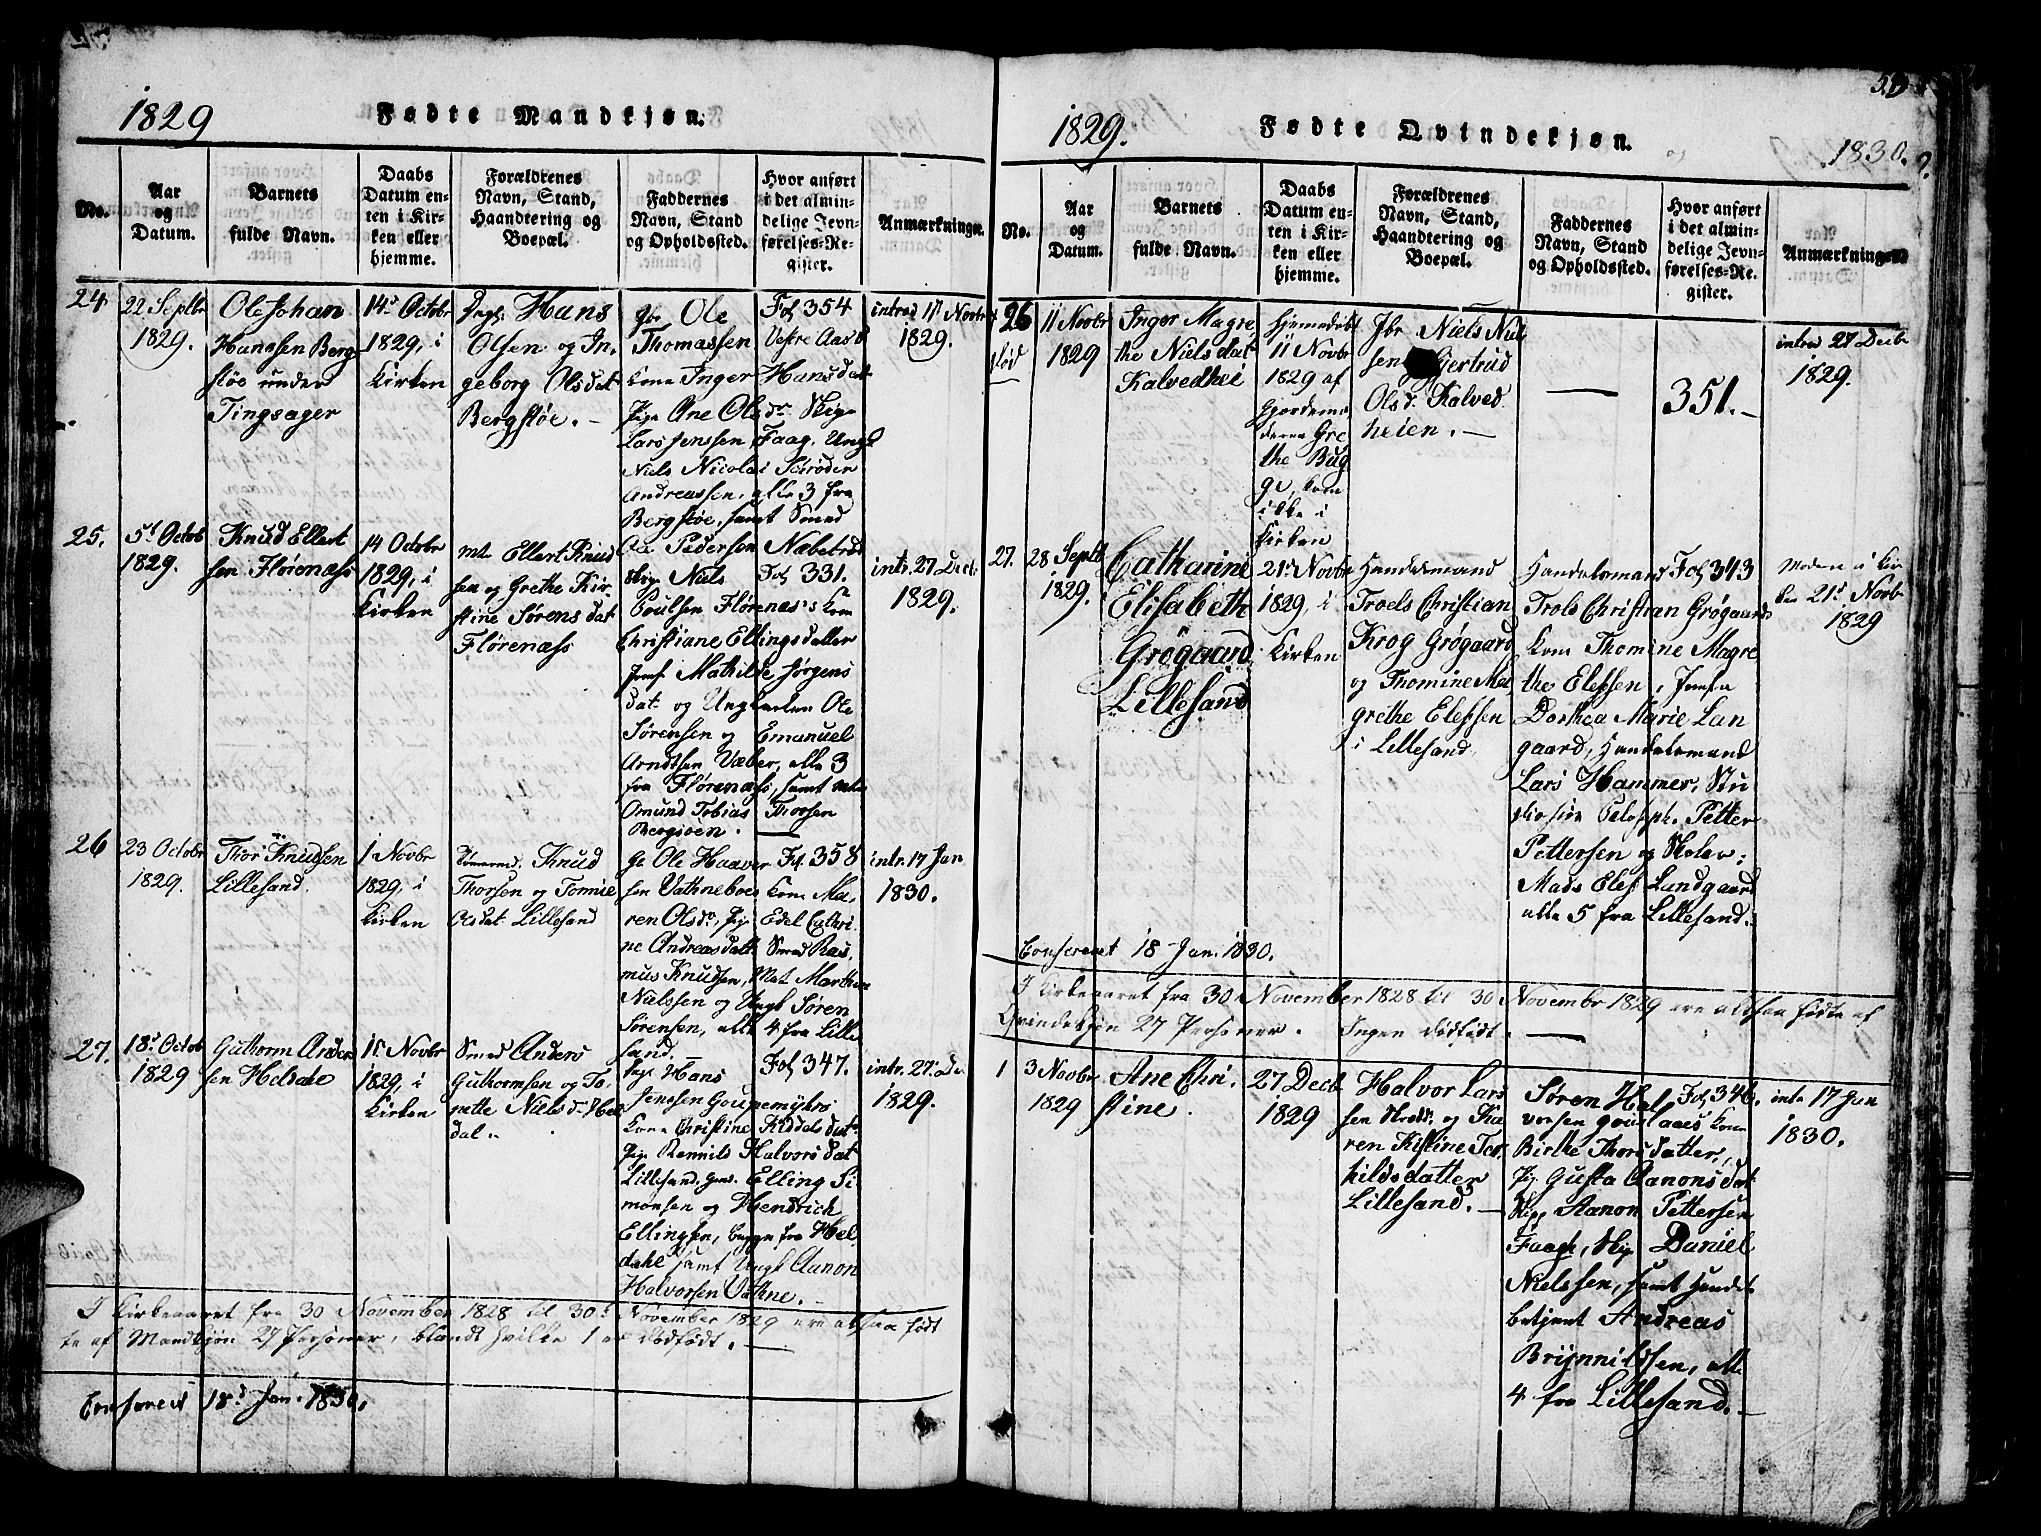 1829
Fødte Mandkjøn.
No.
Aar
og
Datum.
Barnets
fulde Navn.
Daabs
Datum en-
ten i Kir-
ken eller
hjemme.
Forældrenes
Navn, Stand,
Haandtering og
Boepæl.
Faddernes
Navn, Stand
og Opholdssted.
Hvor anført
i det almin-
delige Jevn-
førelses-Re-
gister.
Anmærkninger
24
22 Septbr
1829.
Ole Johan
Hanssen Berg
støe under
Tingsager
14de Octobr
1829, i
Kirken
Hans
Olsen og In
geborg Olsdat
Bergstøe.
Ole
Thomassen
Kone Inger Hansdat
Pige Ane Olsdr. Skip
Lars Jenssen Faag, Ungk
Niels Nicolai Schrøder
Andreassen, alle 3 fra
Bergstøe, samt Smed
Ole Pedersen Næbetrød
Fol 354
Vestre
introd 17 Novbr
1829.
25.
5t Octob
1829.
Knud Ellert
sen Flørenæss
14 Octobr
1829, i
Kirken
mt Ellert Knud
sen og Grethe Kir
stine Sørensdat
Flørenæss
Skip Niels
Poulsen Flørenæs's Kone
Christiane Ellingsdatter
Jomf Mathilde Jørgens
dat og Ungkarlen Ole
Sørensen og Emanuel
Arndtsen Væber, alle 3
fra Flørenæss, samt
Omund Tobias Thorsen
Fol 331.
intr. 27 Dec
1829.
26
23 Octobr
1829.
Thor Knudsen
Lillesand
1 Novbr
1829, i
Kirken
Knud
Thorsen og Tomine
Olsdat Lillesand
Ole Haaver
sen Vathneboe Kone Ma-
ren Olsdr, Pig Edel Cathri
ne Andreasdatt Smed Ras
mus Knudsen, Mat Marthin
Nielssen og Ungk Søren
Sørensen, alle 4 fra Lille
sand.
Fol 358
intr. 17 Jan
1830.
27.
18d Octob
1829
Guthorm Anders
sen Heldale
1t Novbr
1829, i
Kirken
Smed Anders
Guthormsen og To-
nette Nielsd. Hel
dal.
Hans
Jenssen Goupemyhrs
Kone Christine Kiddelsdatr
Pige Rennild Halvorsdat
Lillesand, Elling Si
monsen og Hendrich
Ellingsen, begge fra Hel
dale samt Ungk Aanon
Halvorsen Vathne.
Fol 347.
intr. 27 De
1829.
I Kirkeaaret fra 30 November 1828 til 30t November 1829 ere altsaa født
te af Mandkjøn 27 Personer, blandt hvilke 1 er dødfødt.
Confereret 18d Jan. 1830.
1829.
Fødte Qvindekjøn.
1830.
No.
Aar
og
Datum.
Barnets
fulde Navn.
Daabs
Datum en-
ten i Kir-
ken eller
hjemme.
Forældrenes
Navn, Stand,
Haandtering og
Boepæl.
Faddernes
Navn, Stand
og Opholdssted.
Hvor anført
i det almin-
delige Jevn-
førelses-Re-
gister.
Anmærkninger
26
11 Novbr
1829
Inger Magre
the Nielsdat
Kalvedhei
hjemmedøbt
11 Novbr
1829 af
Gjordemo
deren Gre
the Bug
ge, kom
ikke i
Kirken
Niels Niel
sen Gjertrud
Olsd. Kalved
heien.
351.
intrd 27 Decbr
1829.
27.
28 Septb
1829.
Catharine
Elisabeth
Grøgaard
Lillesand
21d Novbr
1829, i
Kirken
Handelsmand
Troels Christian
Krog Grøgaard
og Thomine Ma
grethe Elefsen
i Lillesand
Handelsmand
Trols Christian Grøgaards
Kone Thomine Magre
the Elefsen, Jomfr
Dorthea Marie Lun
gaard, Handelsmand
Lars Hammer, Stu
diosior Pilosoph. Petter
Pettersen og Skolær:
Mads Elef Lundgaard
alle 5 fra Lillesand.
Fol 343
Moden i Kir
ken 21d Novbr
1829
Confereret 18 Jan. 1830.
I Kirkeaaret fra 30 November 1828 til 30 Novembr 1829 ere altsaa fødte af
Qvindekjøn 27 Personer. Ingen dødfødt.
1
3 Novbr
1829
Ane Chri.
stine.
27 Decb
1829
Halvor Lars
sen og Ka
ren Kistine Ter
hildsdatter
Lillesand.
Søren Hal
vorsen Kone
Birthe Thorsdatter,
Pig Gusta Aanonsdat
Skip Aanon Pettersen
Faag, Skip Daniel
Nielssen, samt Handels
betjent Andreas
Brynnildsen, alle
4 fra Lillesand.
Fol 346.
intr 17 Jan
1830.